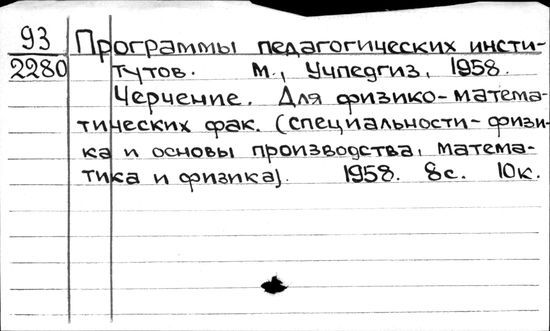 93 Программы педагогических инсти-
2280 тутов. М., Учпедгиз, 1958.
Черчение. Для физико-матема-
тических фак. (специальности-физи-
ка и основы производства, матема-
тика и физика). 1958. 8с. 10к.